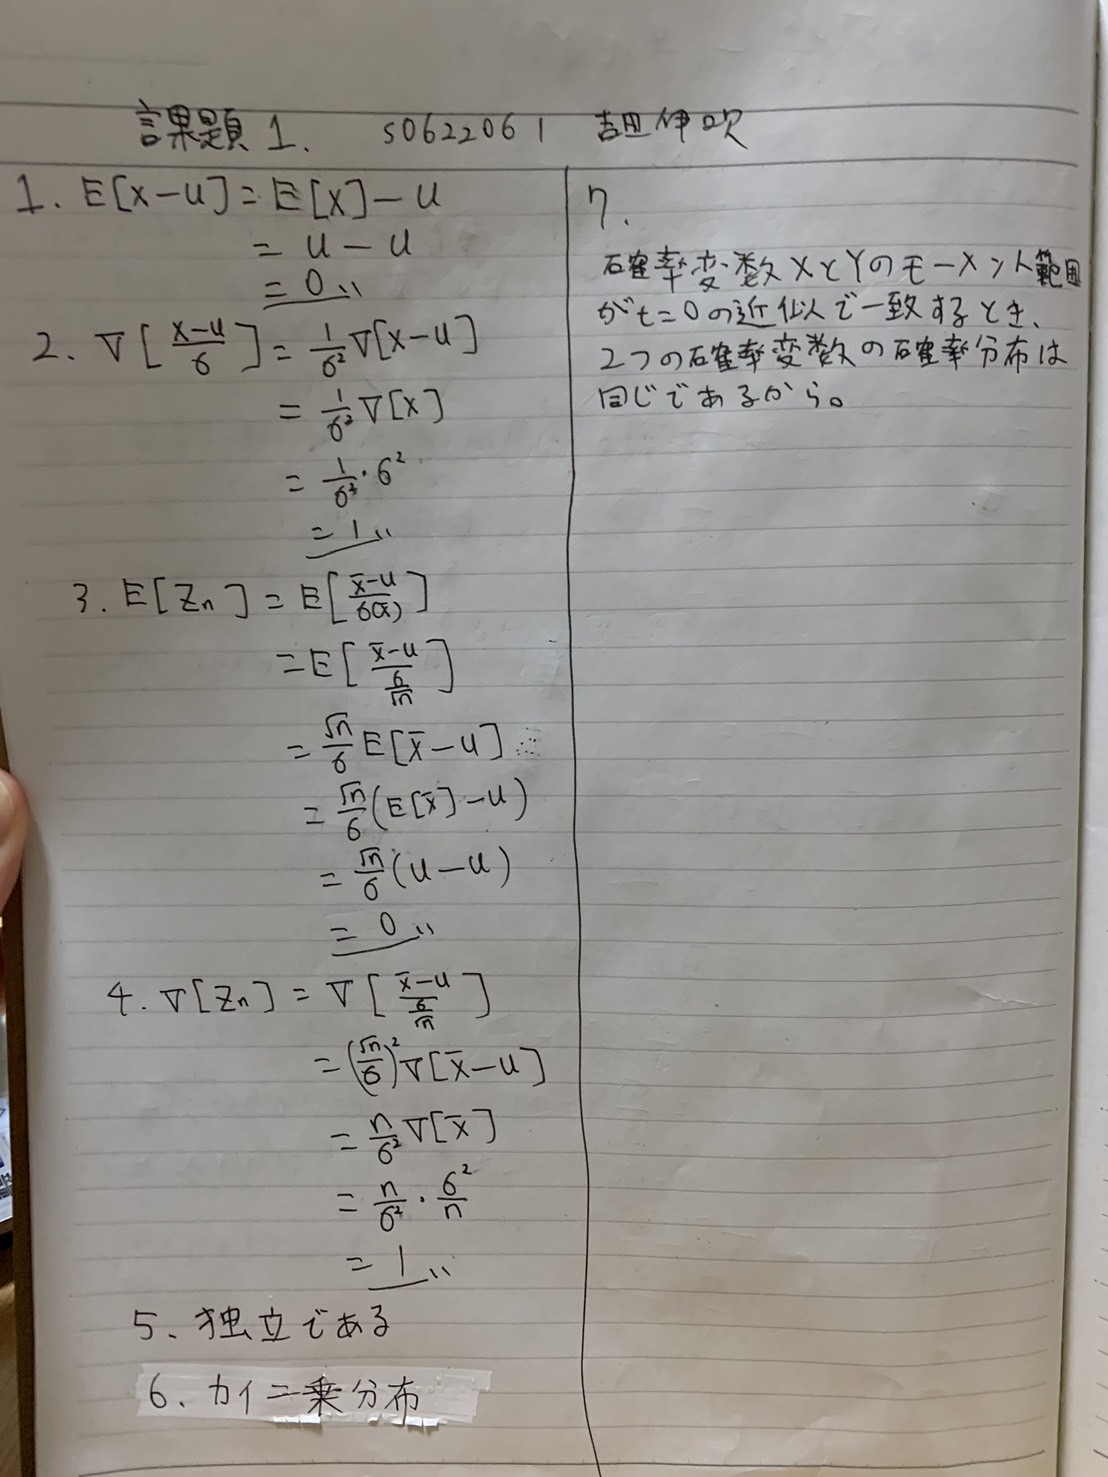 課題1. s0622061 吉田伊吹
1. E[x-u] = E[x]-u
= u-u
= 0〃
2. V[(x-u)/6] = 1/6² V[x-u]
= 1/6² V[x]
= 1/6² · 6²
= 1〃
3. E[Zn] = E[(x̄-u)/6(x̄)]
= E[(x̄-u)/(6/√n)]
= √n/6 E[x̄-u]
= √n/6 (E[x̄]-u)
= √n/6 (u-u)
= 0〃
4. V[Zn] = V[(x̄-u)/(6/√n)]
= (√n/6)² V[x̄-u]
= n/6² V[x̄]
= n/6² · 6²/n
= 1〃
5. 独立である
6. カイ二乗分布
7.
確率変数XとYのモーメント範囲
がt=0の近似で一致するとき、
2つの確率変数の確率分布は
同じであるから。